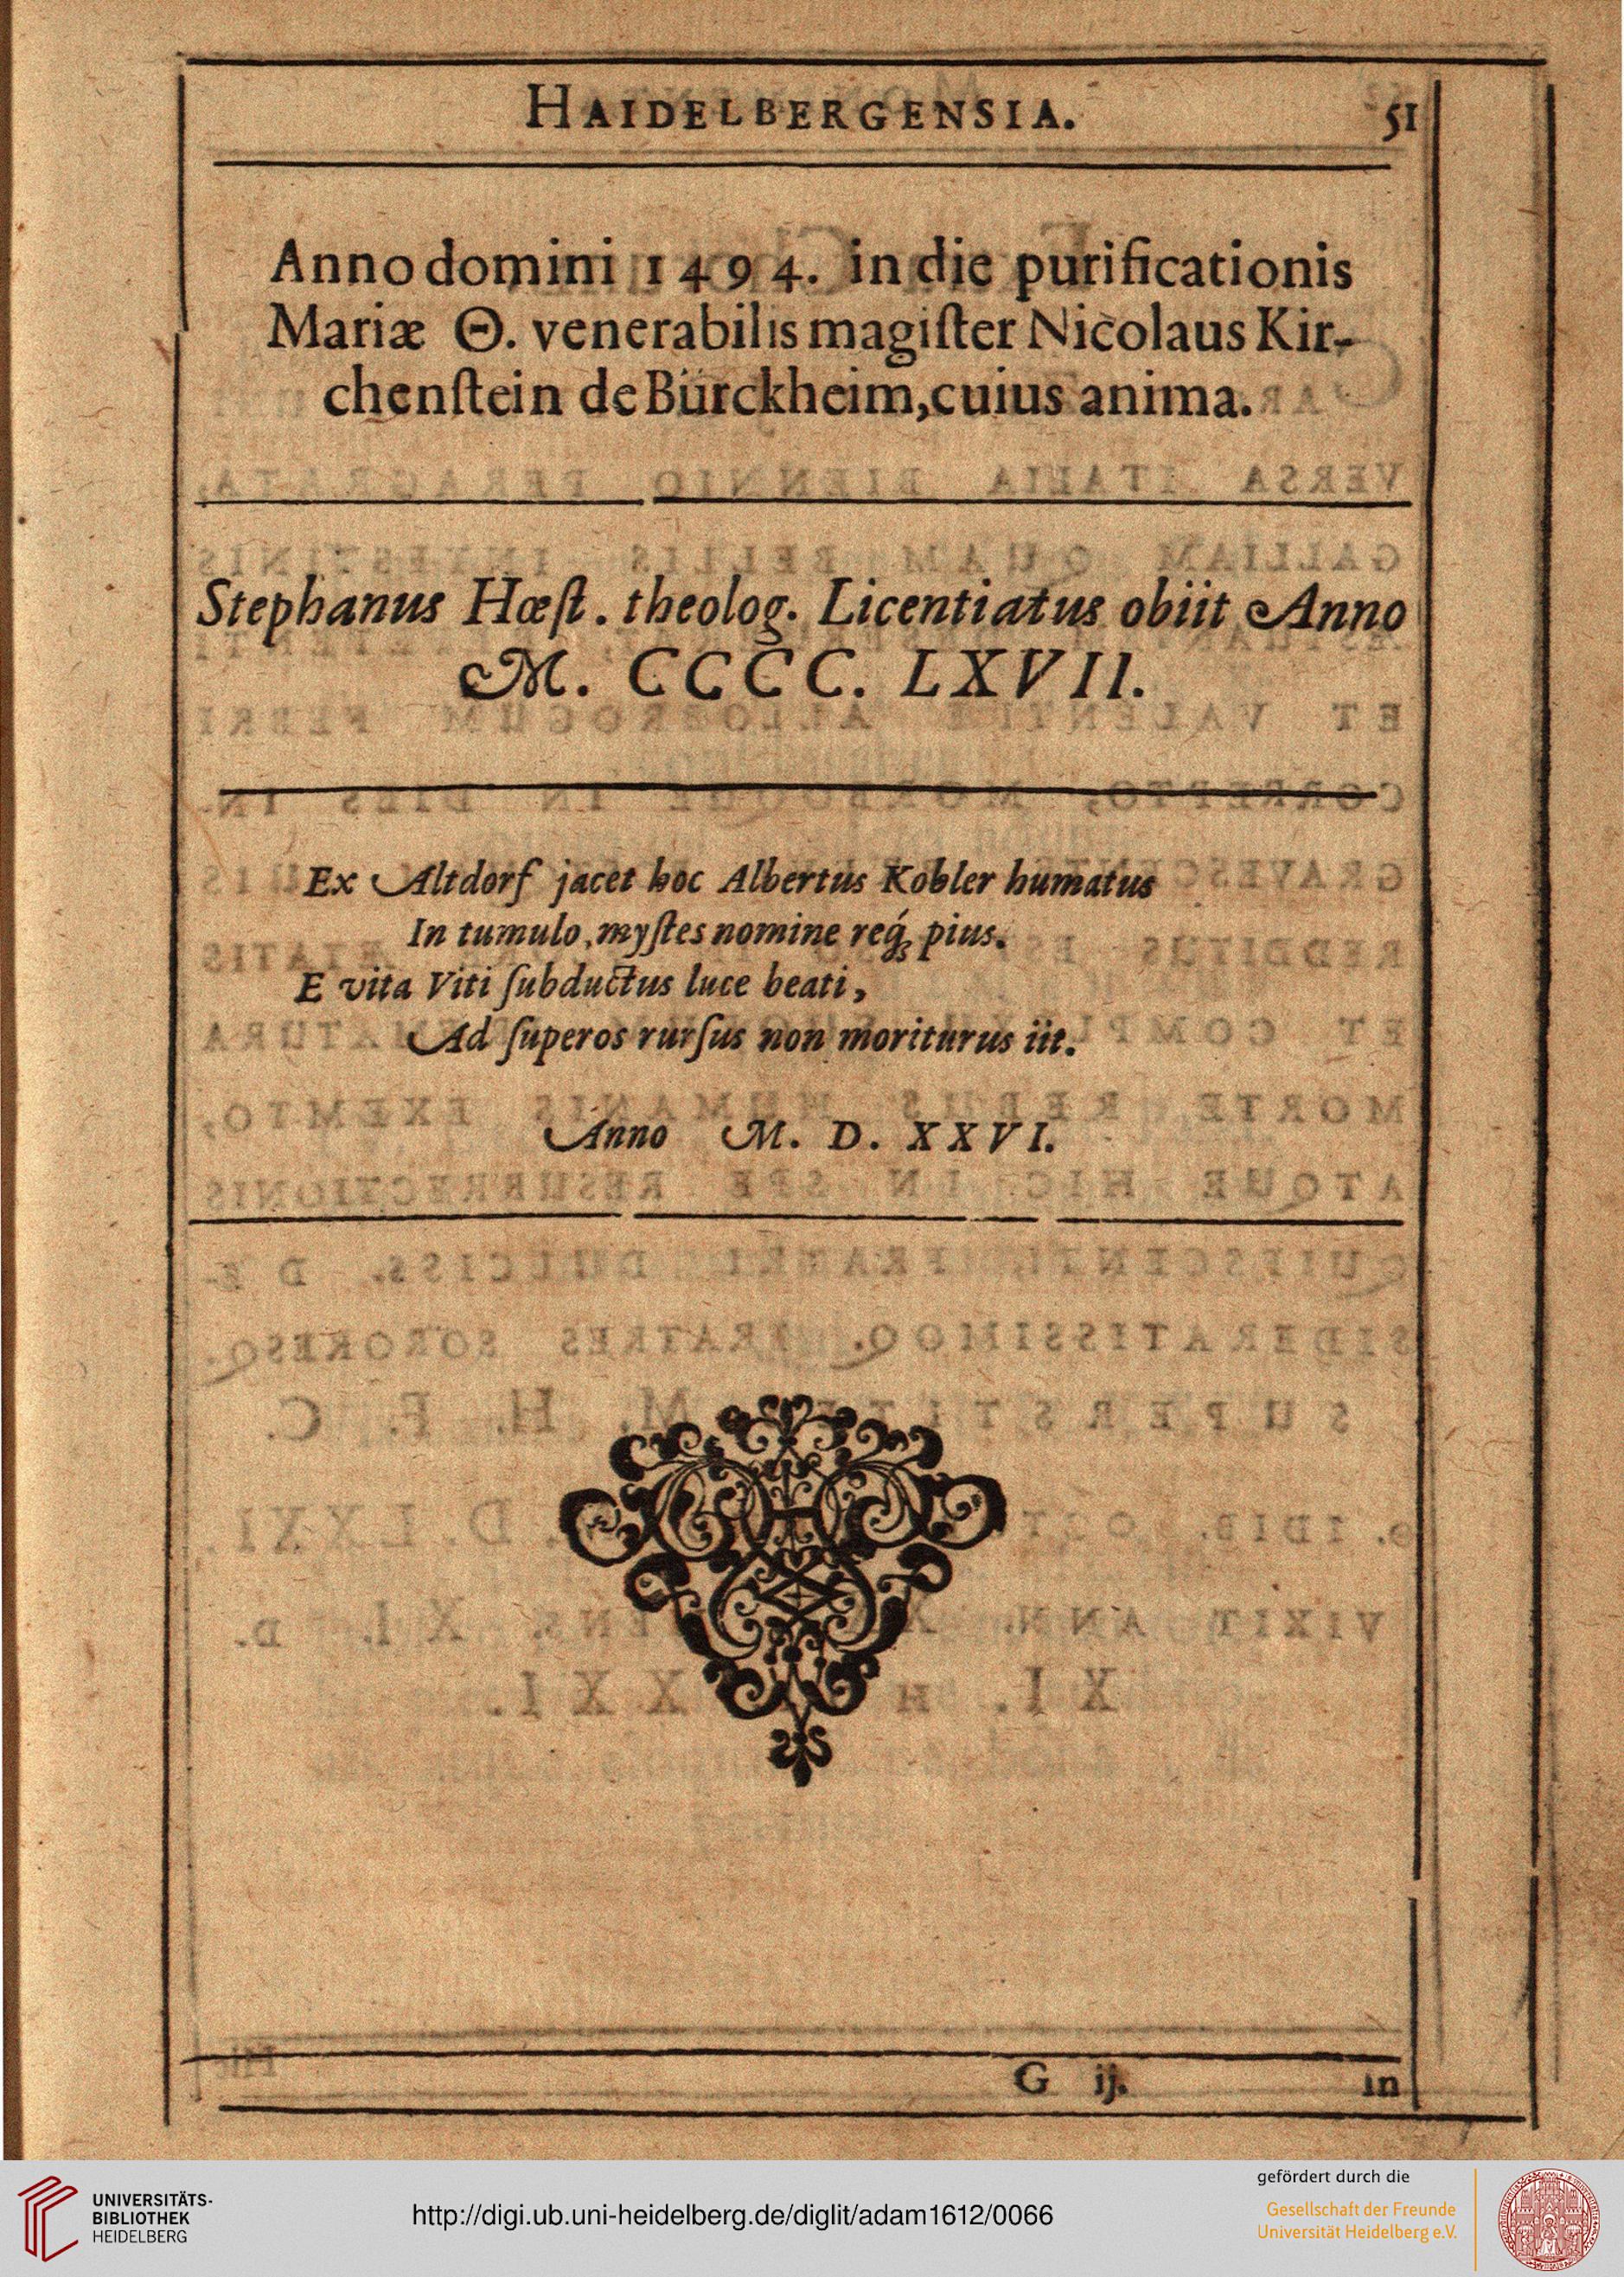 HAIDELBERGENSIA. 51
Anno domini 1494. in die purificationis
Mariæ Θ. venerabilis magiſter Nicolaus Kir-
chenſtein de Bürckheim, cuius anima.
Stephanus Hœſt. theolog. Licentiatus obiit Anno
M. CCCC. LXVII.
Ex Altdorf jacet hoc Albertus Kobler humatus
In tumulo, myſtes nomine req́; pius.
E vita Viti ſubductus luce beati,
Ad ſuperos rurſus non moriturus iit.
Anno M. D. XXVI.
G ij. in
UNIVERSITÄTS-
BIBLIOTHEK
HEIDELBERG
http://digi.ub.uni-heidelberg.de/diglit/adam1612/0066
gefördert durch die
Gesellschaft der Freunde
Universität Heidelberg e.V.